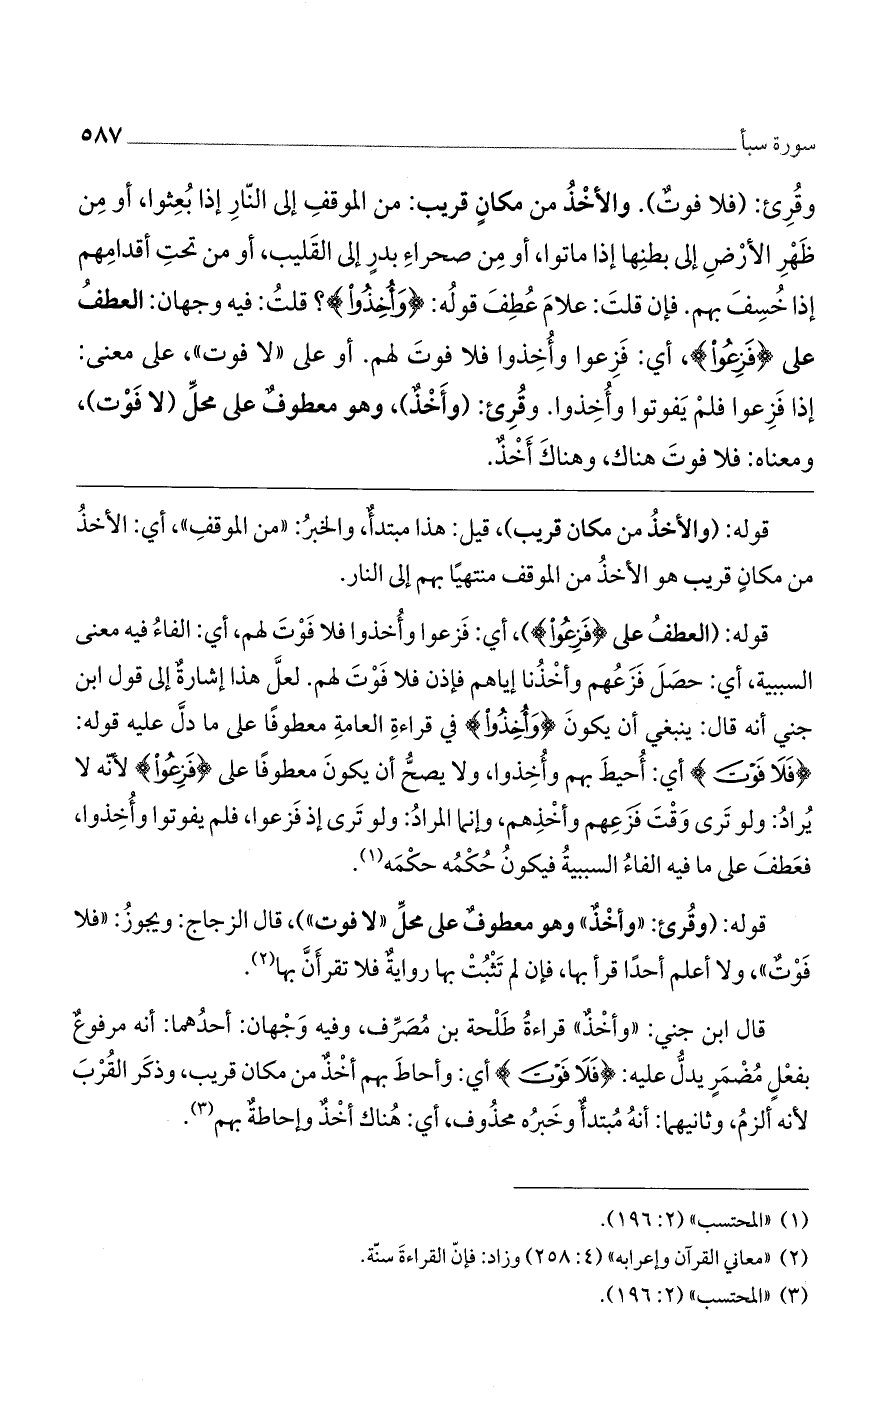 سورة سبأ ٥٨٧
وقُرِئ: (فلا فوتٌ). والأخْذُ من مكانٍ قريب: من الموقفِ إلى النّارِ إذا بُعِثوا، أو مِن
ظَهْرِ الأرْضِ إلى بطنِها إذا ماتوا، أو مِن صحراءِ بدرٍ إلى القَليب، أو من تحتِ أقدامِهم
إذا خُسِفَ بهم. فإن قلتَ: علامَ عُطِفَ قولُه: ﴿وَأُخِذُواْ﴾؟ قلتُ: فيه وجهان: العطفُ
على ﴿فَزِعُواْ﴾، أي: فَزِعوا وأُخِذوا فلا فوتَ لهم. أو على «لا فوت»، على معنى:
إذا فَزِعوا فلمْ يَفوتوا وأُخِذوا. وقُرِئ: (وأَخْذٌ)، وهو معطوفٌ على محلِّ (لا فَوْت)،
ومعناه: فلا فوتَ هناك، وهناكَ أَخْذٌ.
قوله: (والأخذُ من مكان قريب)، قيل: هذا مبتدأٌ، والخبرُ: «من الموقفِ»، أي: الأخذُ
من مكانٍ قريب هو الأخذُ من الموقف منتهيًا بهم إلى النار.
قوله: (العطفُ على ﴿فَزِعُواْ﴾)، أي: فَزعوا وأُخذوا فلا فَوْتَ لهم، أي: الفاءُ فيه معنى
السببية، أي: حصَلَ فَزَعُهم وأخْذُنا إياهم فإذن فلا فَوْتَ لهم. لعلَّ هذا إشارةٌ إلى قول ابن
جني أنه قال: ينبغي أن يكونَ ﴿وَأُخِذُواْ﴾ في قراءةِ العامةِ معطوفًا على ما دلَّ عليه قوله:
﴿فَلَا فَوْتَ﴾ أي: أُحيطَ بهم وأُخِذوا، ولا يصحُّ أن يكونَ معطوفًا على ﴿فَزِعُواْ﴾ لأنّه لا
يُرادُ: ولو تَرى وَقْتَ فَزَعِهم وأخْذِهم، وإنما المرادُ: ولو تَرى إذ فَزعوا، فلم يفوتوا وأُخِذوا،
فعَطفَ على ما فيه الفاءُ السببيةُ فيكونُ حُكْمُه حكْمَه(١).
قوله: (وقُرئ: «وأخْذٌ» وهو معطوفٌ على محلِّ «لا فوت»)، قال الزجاج: ويجوزُ: «فلا
فَوْتٌ»، ولا أعلم أحدًا قرأ بها، فإن لم تَثْبُتْ بها روايةٌ فلا تقرأَنَّ بها(٢).
قال ابن جني: «وأخْذٌ» قراءةُ طَلْحة بن مُصَرِّف، وفيه وَجْهان: أحدُهما: أنه مرفوعٌ
بفعْلٍ مُضْمَرٍ يدلُّ عليه: ﴿فَلَا فَوْتَ﴾ أي: وأحاطَ بهم أخْذٌ من مكان قريب، وذكَر القُرْبَ
لأنه ألزمُ، وثانيهما: أنهُ مُبتدأٌ وخَبرُه محذُوف، أي: هُناك أخْذٌ وإحاطةٌ بهم(٣).
(١) «المحتسب» (٢: ١٩٦).
(٢) «معاني القرآن وإعرابه» (٤: ٢٥٨) وزاد: فإنّ القراءةَ سنّة.
(٣) «المحتسب» (٢: ١٩٦).